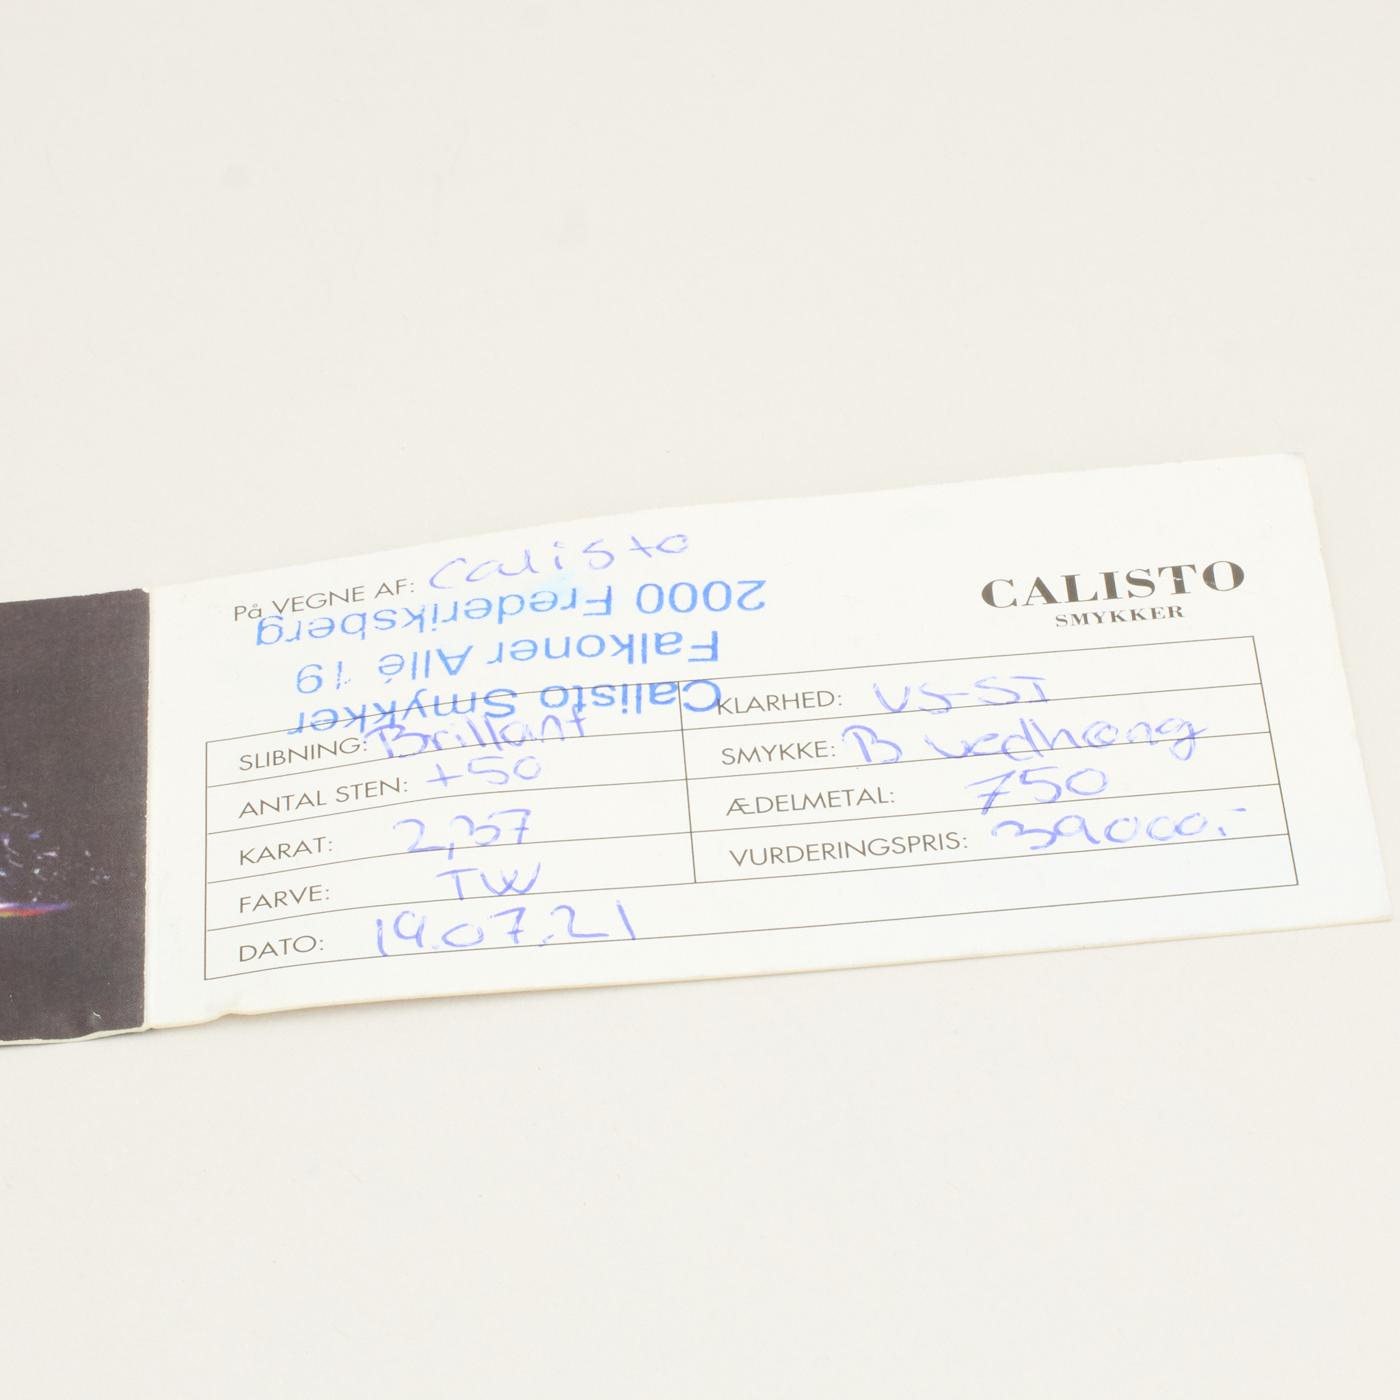 På VEGNE AF: Calisto
CALISTO
SMYKKER
Calisto Smykker
Falkoner Allé 19
2000 Frederiksberg
SLIBNING: Brillant
ANTAL STEN: +50
KARAT: 2,37
FARVE: TW
DATO: 19.07.21
KLARHED: VS-SI
SMYKKE: B vedhæng
ÆDELMETAL: 750
VURDERINGSPRIS: 39000,-